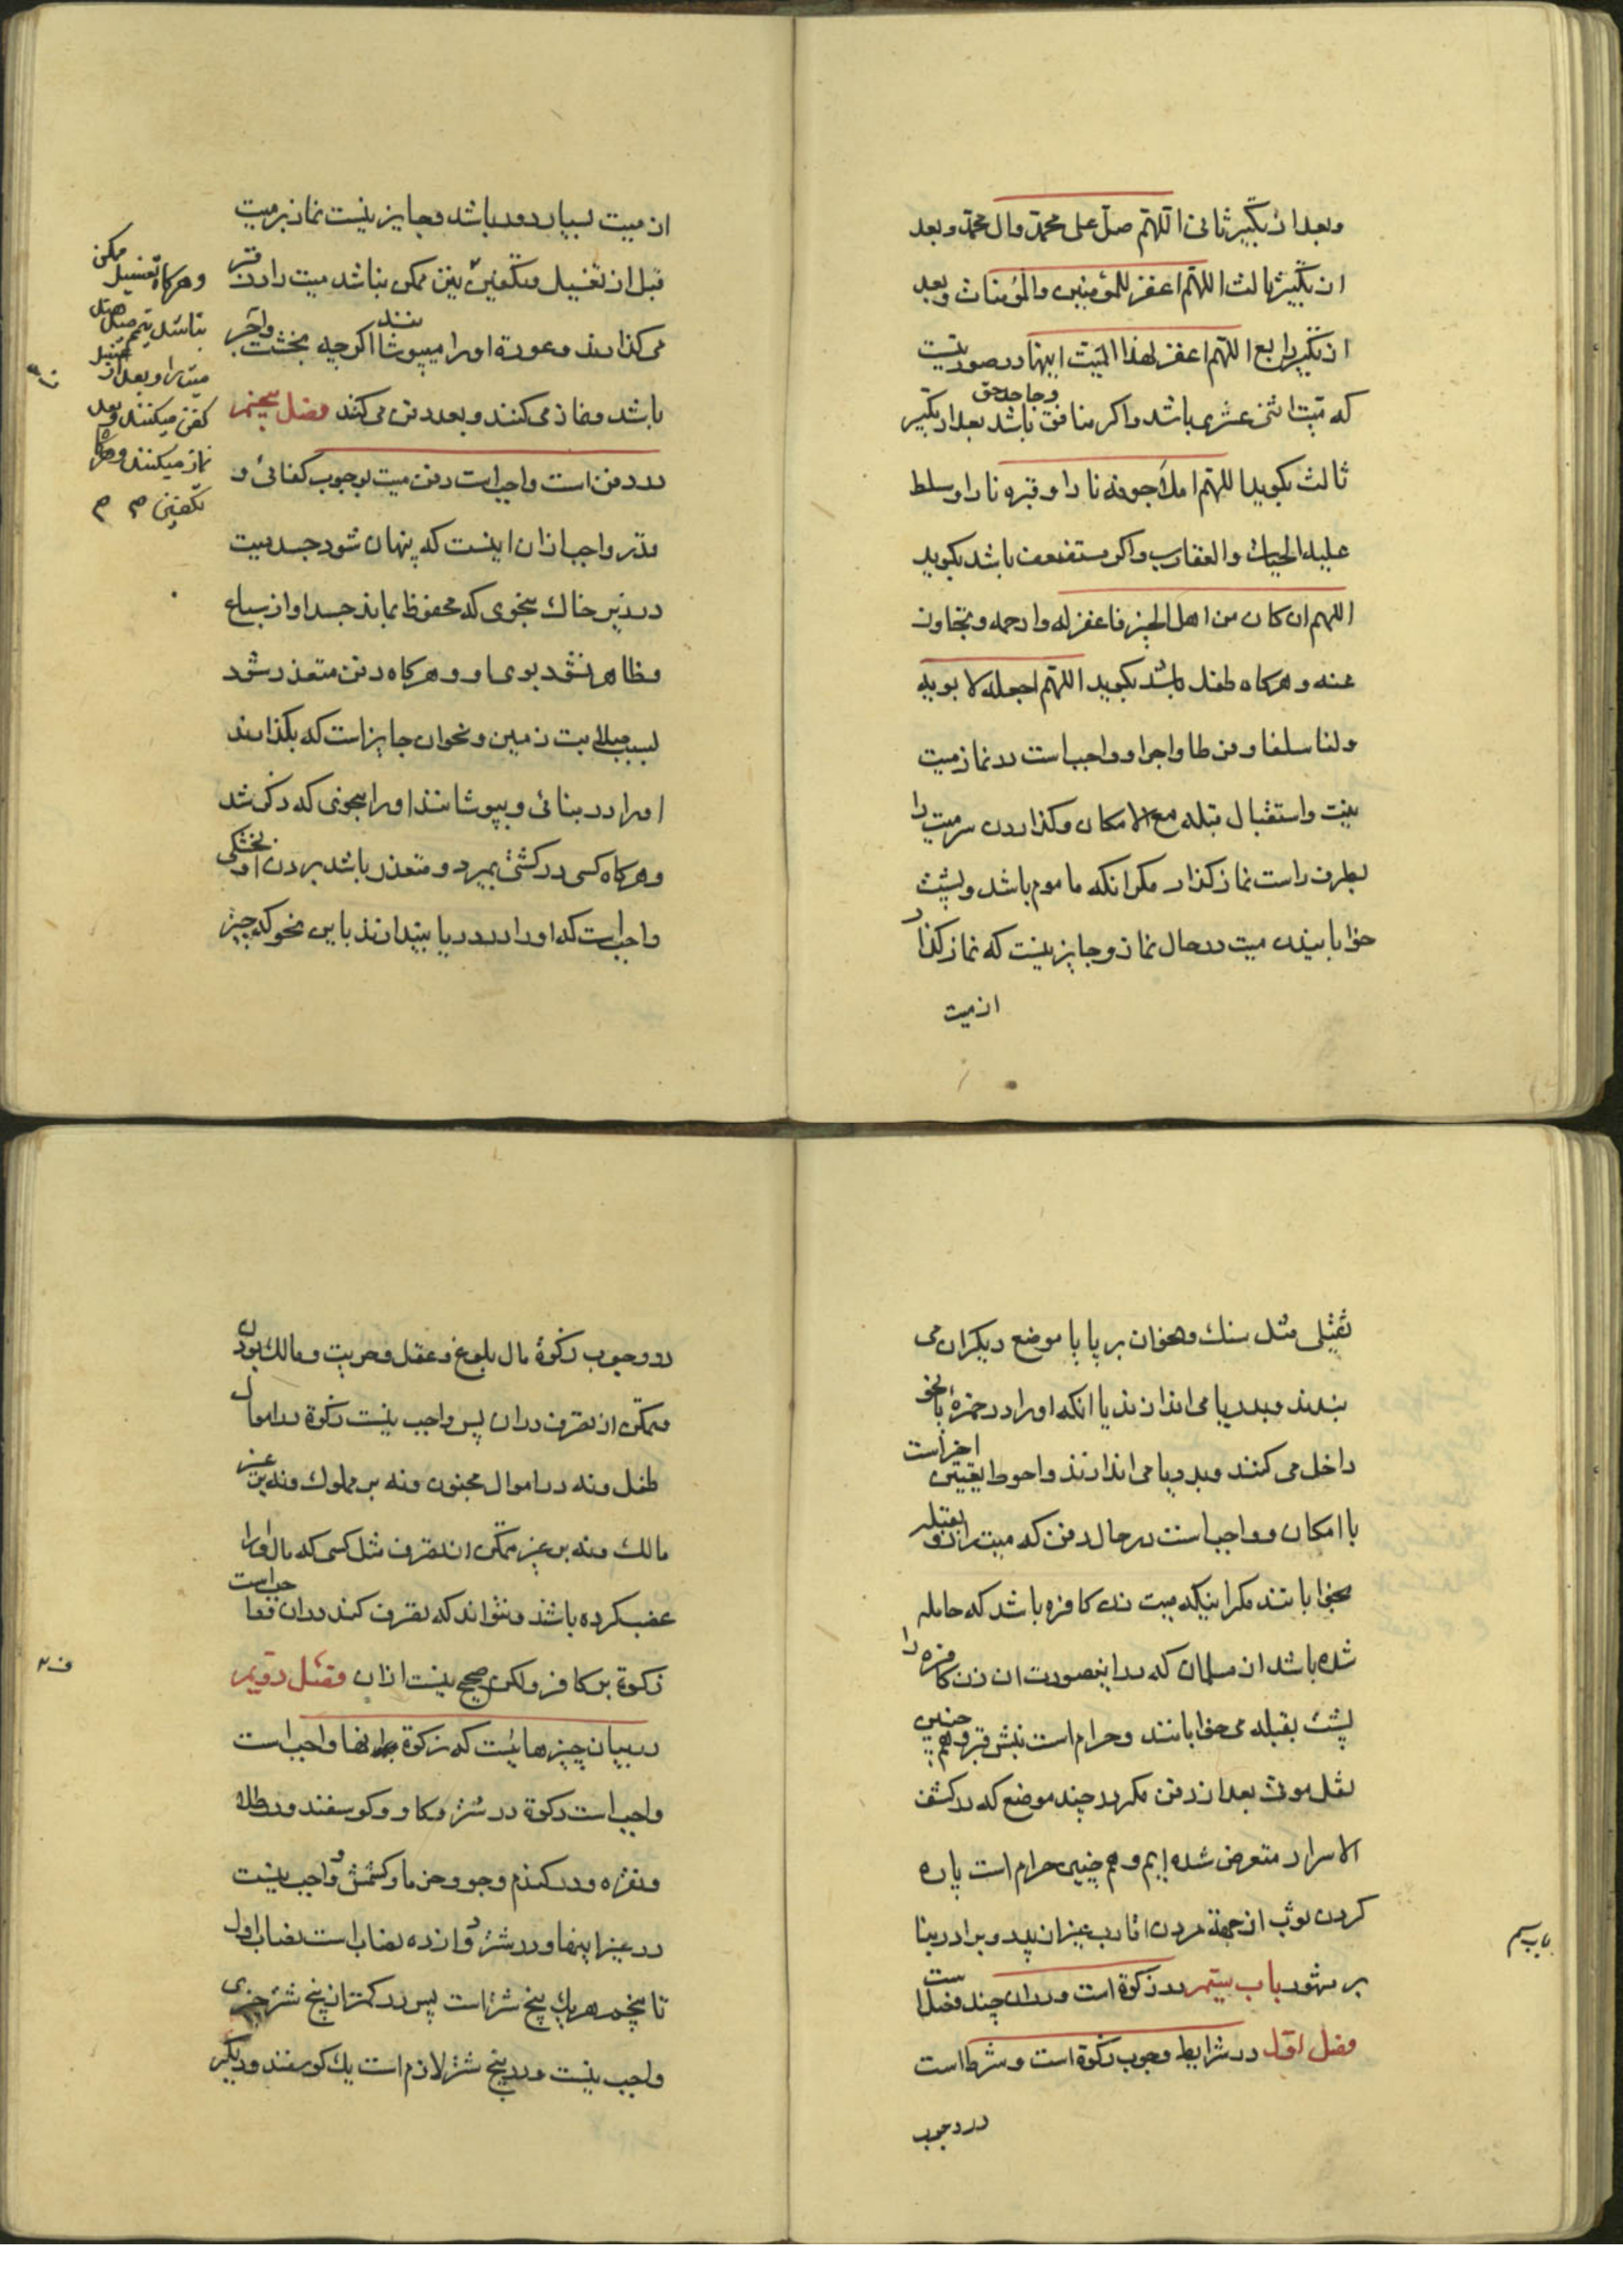 وبعد از تکبیر ثانی اللهم صل علی محمد وال محمد وبعد
از تکبیر ثالث اللهم اغفر للمؤمنین والمؤمنات وبعد
از تکبیر رابع اللهم اغفر لهذا المیت اینها در صورتیست
که میت اثنی عشری باشد واکر منافق وجاحد حق باشد بعد از تکبیر
ثالث بکوید اللهم املأ جوفه نارا وقبره نارا وسلط
علیه الحیات والعقارب واکر مستضعف باشد بکوید
اللهم ان کان من اهل الخیر فاغفر له وارحمه وتجاوز
عنه وهرکاه طفل باشد بکوید اللهم اجعله لابویه
ولنا سلفا وفرطا واجرا وواجب است در نماز میت
نیت واستقبال قبله مع الامکان وکذاردن سر میت را
بطرف راست نماز کذار مکر انکه ماموم باشد وبپشت
خوابانیدن میت در حال نماز وجایز نیست که نماز کذار
از میت
از میت بسیار دور باشد وجایز نیست نماز بر میت
قبل از تغسیل وتکفین ممکن نباشد میت را در قبر
می کذارند وعورة او را میپوشانند اکرچه بخشت واجر
باشد ونماز می کنند وبعد دفن می کنند فصل پنجم
در دفن است واجب است دفن میت بوجوب کفائی و
قدر واجب از ان اینست که پنهان شود جسد میت
در زیر خاک بنحوی که محفوظ بماند جسد او از سباع
وظاهر نشود بوی او وهرکاه دفن متعذر شود
بسبب صلابت زمین ونحو ان جایز است که بکذارند
او را در بنائی وبپوشانند او را بنحوی که ذکر شد
وهرکاه کسی در کشتی بمیرد ومتعذر باشد بردن او بخشکی
واجب است که او را در دریا بیندازند باین نحو که چیز
وهرکاه تغسیل ممکن
نباشد تیمم میدهند
میت را وبعد از
کفن میکنند وبعد
نماز میکنند وهرکاه
تکفین
ثقیلی مثل سنک ونحو ان بر پا یا موضع دیکر ان می
بندند وبدریا می اندازند یا انکه او را در خمره یا نحو
داخل می کنند وبدریا می اندازند واحوط تعیین اخر است
با امکان وواجب است در حال دفن که میت را رو بقبله
بخوابانند مکر اینکه میت زن کافره باشد که حامله
شده باشد از مسلمان که در اینصورت ان زن کافره را
پشت بقبله می خوابانند وحرام است نبش قبر وهم چنین
نقل موتی بعد از دفن مکر در چند موضع که در کشف
الاسرار متعرض شده ایم وهم چنین حرام است پاره
کردن ثوب از جهة مردن اقارب غیر از پدر وبرادر بنا
بر مشهور باب سیم در زکوة است ودر ان چند فصل است
فصل اول در شرایط وجوب زکوة است وشرط است
در وجوب
باب سیم
در وجوب زکوة مال بلوغ وعقل وحریت ومالک بودن
وتمکن از تصرف در ان پس واجب نیست زکوة در اموال
طفل ونه در اموال مجنون ونه بر مملوک ونه بر غیر
مالک ونه بر غیر متمکن از تصرف مثل کسی که مال او را
غصب کرده باشند ونتواند که تصرف کند در ان وواجب است
زکوة بر کافر ولکن صحیح نیست از ان فصل دویم
در بیان چیزهائیست که زکوة در انها واجب است
واجب است زکوة در شتر وکاو وکوسفند ودر طلا
ونقره ودر کندم وجو وخرما وکشمش وواجب نیست
در غیر اینها ودر شتر دوازده نصاب است نصاب اول
تا پنجم هر یک پنج شتر است پس در کمتر از پنج شتر چیزی
واجب نیست ودر پنج شتر لازم است یک کوسفند ودیکر
ف۲